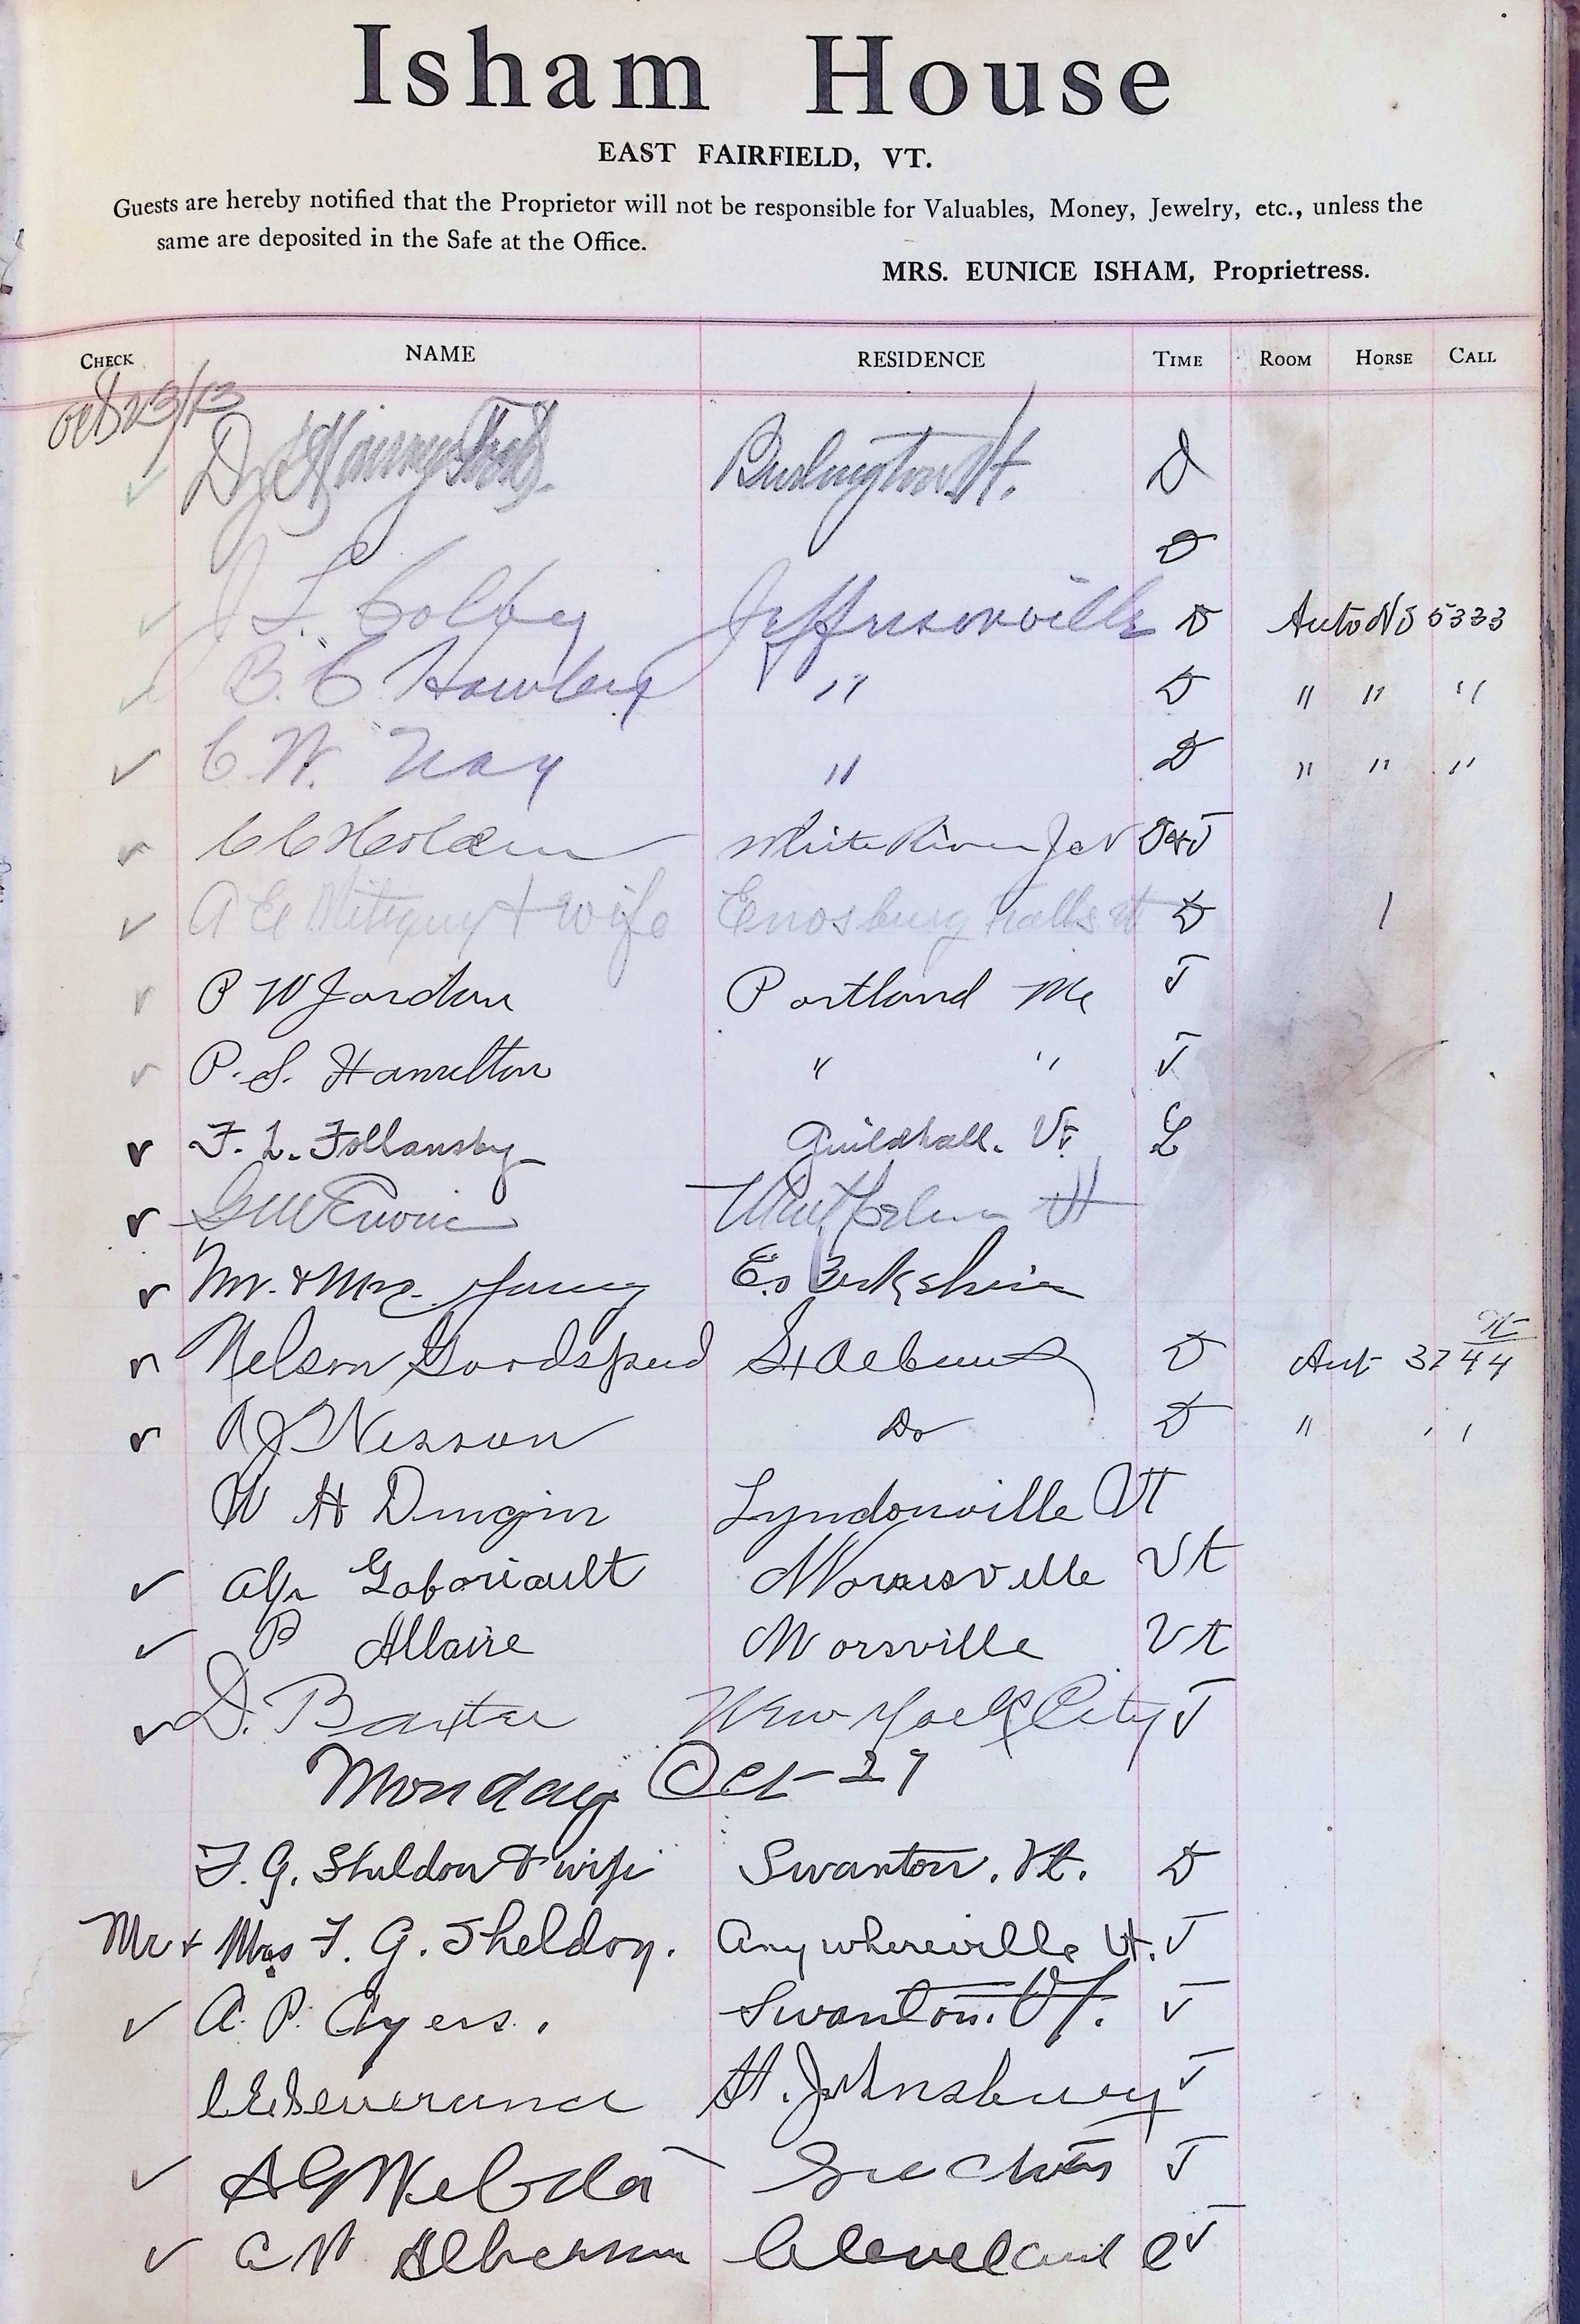 Isham House
EAST FAIRFIELD, VT.
Guests are hereby notified that the Proprietor will not be responsible for Valuables, Money, Jewelry, etc., unless the
same are deposited in the Safe at the Office.
MRS. EUNICE ISHAM, Proprietress.
CHECK NAME RESIDENCE TIME ROOM HORSE CALL
Oct 23/13
Burlington Vt. D
D
J L. Colby Jeffersonville D Auto No 5333
B. C. Hawley " D " " "
C. W. Nay " D " " "
C C Holden White River Jct D
A E Mitiguy & wife Enosburg Falls Vt D 1
P W Jordan Portland Me T
P. S. Hamilton " " T
F. L. Follansby Guildhall. Vt. L
Vt
Mr. & Mrs. Young E. Berkshire
Nelson Goodspeed St Albans D Aut 3744
Nesson Do D " "
W H Lyndonville Vt
Gaboriault Morrisville Vt
P Allaire Morsville Vt
D. Baxter New York City T
Monday Oct- 27
F. G. Sheldon & wife Swanton, Vt. D
Mr & Mrs F. G. Sheldon. Anywhereville Vt. T
A. P. Ayers. Swanton. Vt. T
C E Severance St. Johnsbury T
T
Cleveland O T